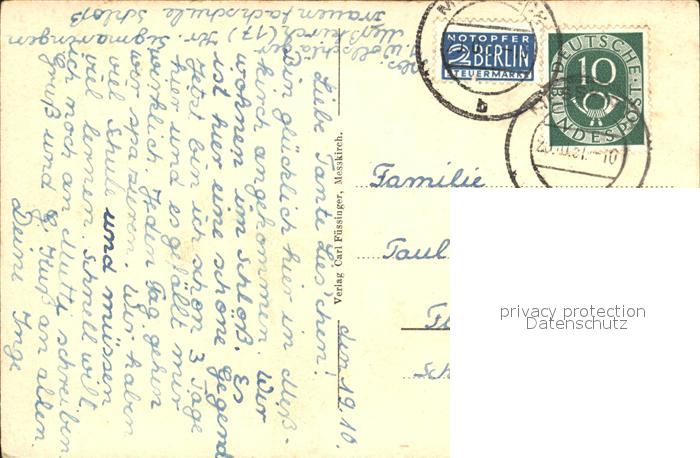 Abs. Wollschläger
Meßkirch (17) Kr. Sigmaringen
Frauenfachschule Schloß
den 19.10.
Liebe Tante Lieschen!
Bin glücklich hier in Meß-
kirch angekommen. Wir
wohnen im Schloß. Es
ist hier eine schöne Gegend
Jetzt bin ich schon 3 Tage
hier und es gefällt mir
wirklich. Jeden Tag gehen
wir spazieren. Wir haben
viel Schule und müssen
viel lernen. Schnell will
ich noch an Mutti schreiben
Gruß und Kuß an allen
Deine Inge
Verlag Carl Füssinger, Messkirch.
NOTOPFER
2 BERLIN
STEUERMARKE
DEUTSCHE
10
BUNDESPOST
b
Familie
Paul
privacy protection
Datenschutz